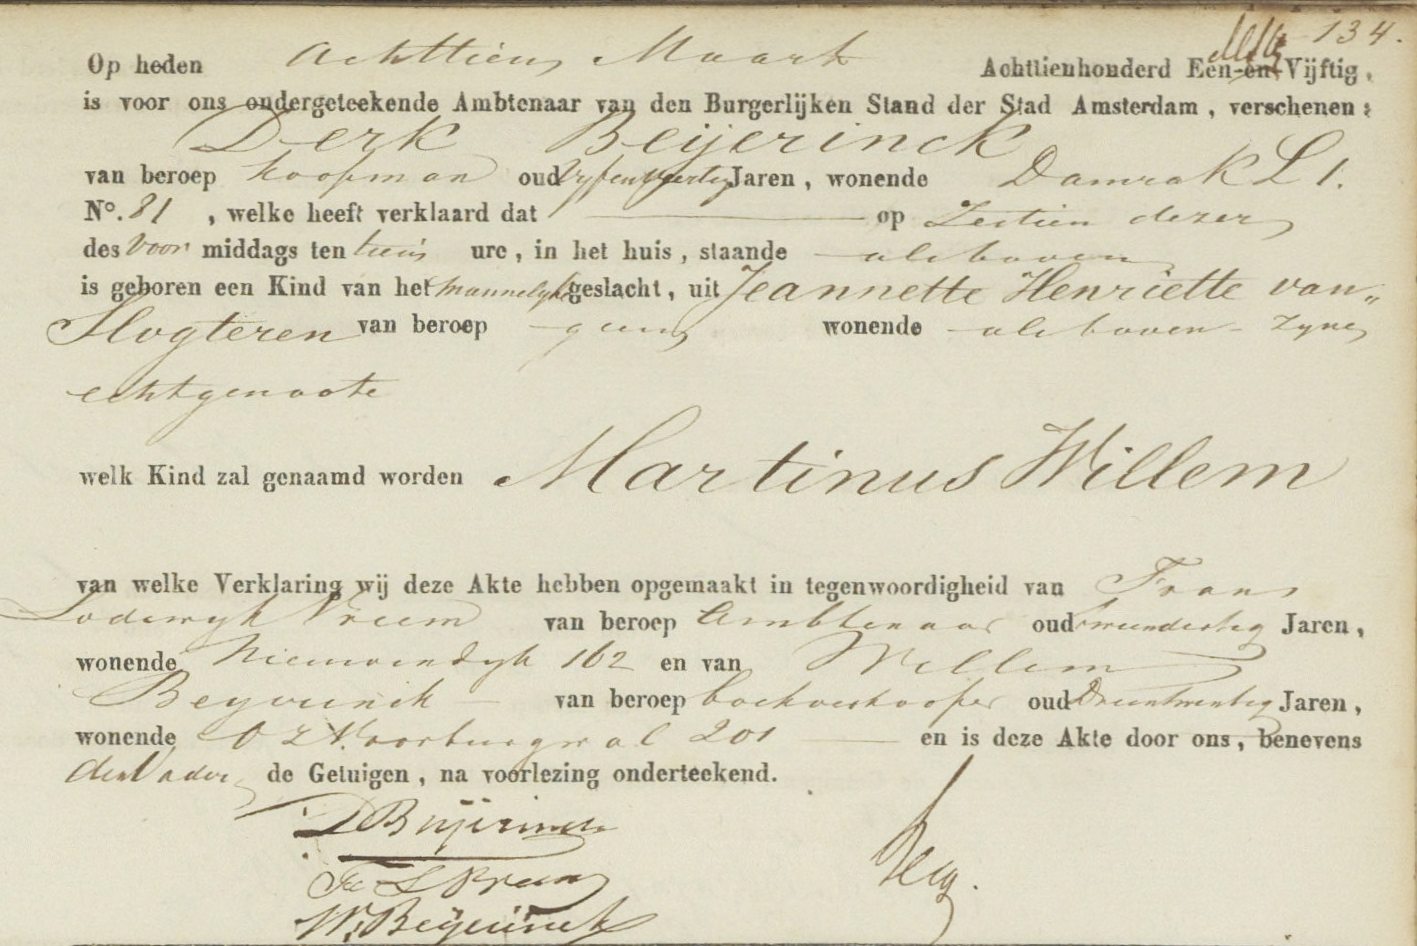 134.
Op heden Achttien Maart Achttienhonderd Een-en-Vijftig,
is voor ons ondergeteekende Ambtenaar van den Burgerlijken Stand der Stad Amsterdam, verschenen:
Derk Beijerinck
van beroep Koopman oud Vyfenveertig Jaren, wonende Damrak L 1.
Nº. 81, welke heeft verklaard dat op Zestien dezer
des Voor middags ten tien ure, in het huis, staande als boven
is geboren een Kind van het mannelijk geslacht, uit Jeannette Henriette van
Slogteren van beroep geen wonende als boven zyne
echtgenoote
welk Kind zal genaamd worden Martinus Willem
van welke Verklaring wij deze Akte hebben opgemaakt in tegenwoordigheid van Frans
Lodewyk Vreem van beroep Ambtenaar oud Jaren,
wonende Nieuwendyk 162 en van Willem
Beyerinck van beroep boekverkooper oud Drieentwintig Jaren,
wonende O Z Voorburgwal 201 en is deze Akte door ons, benevens
den Vader de Getuigen, na voorlezing onderteekend.
D Beijerinck
W. Beijerinck